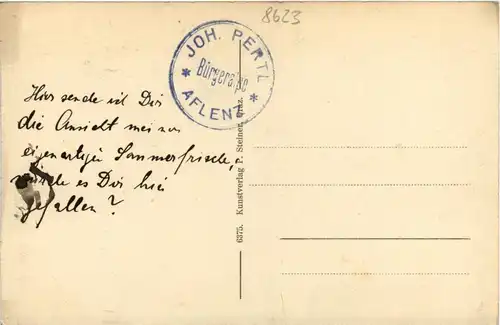 8623
JOH. PERTL
Bürgeralpe
* AFLENZ *
Hier sende ich Dir
die Ansicht meiner
eigenartigen Sommerfrische,
würde es Dir hier
gefallen?
6375. Kunstverlag P. Steiner, Graz.